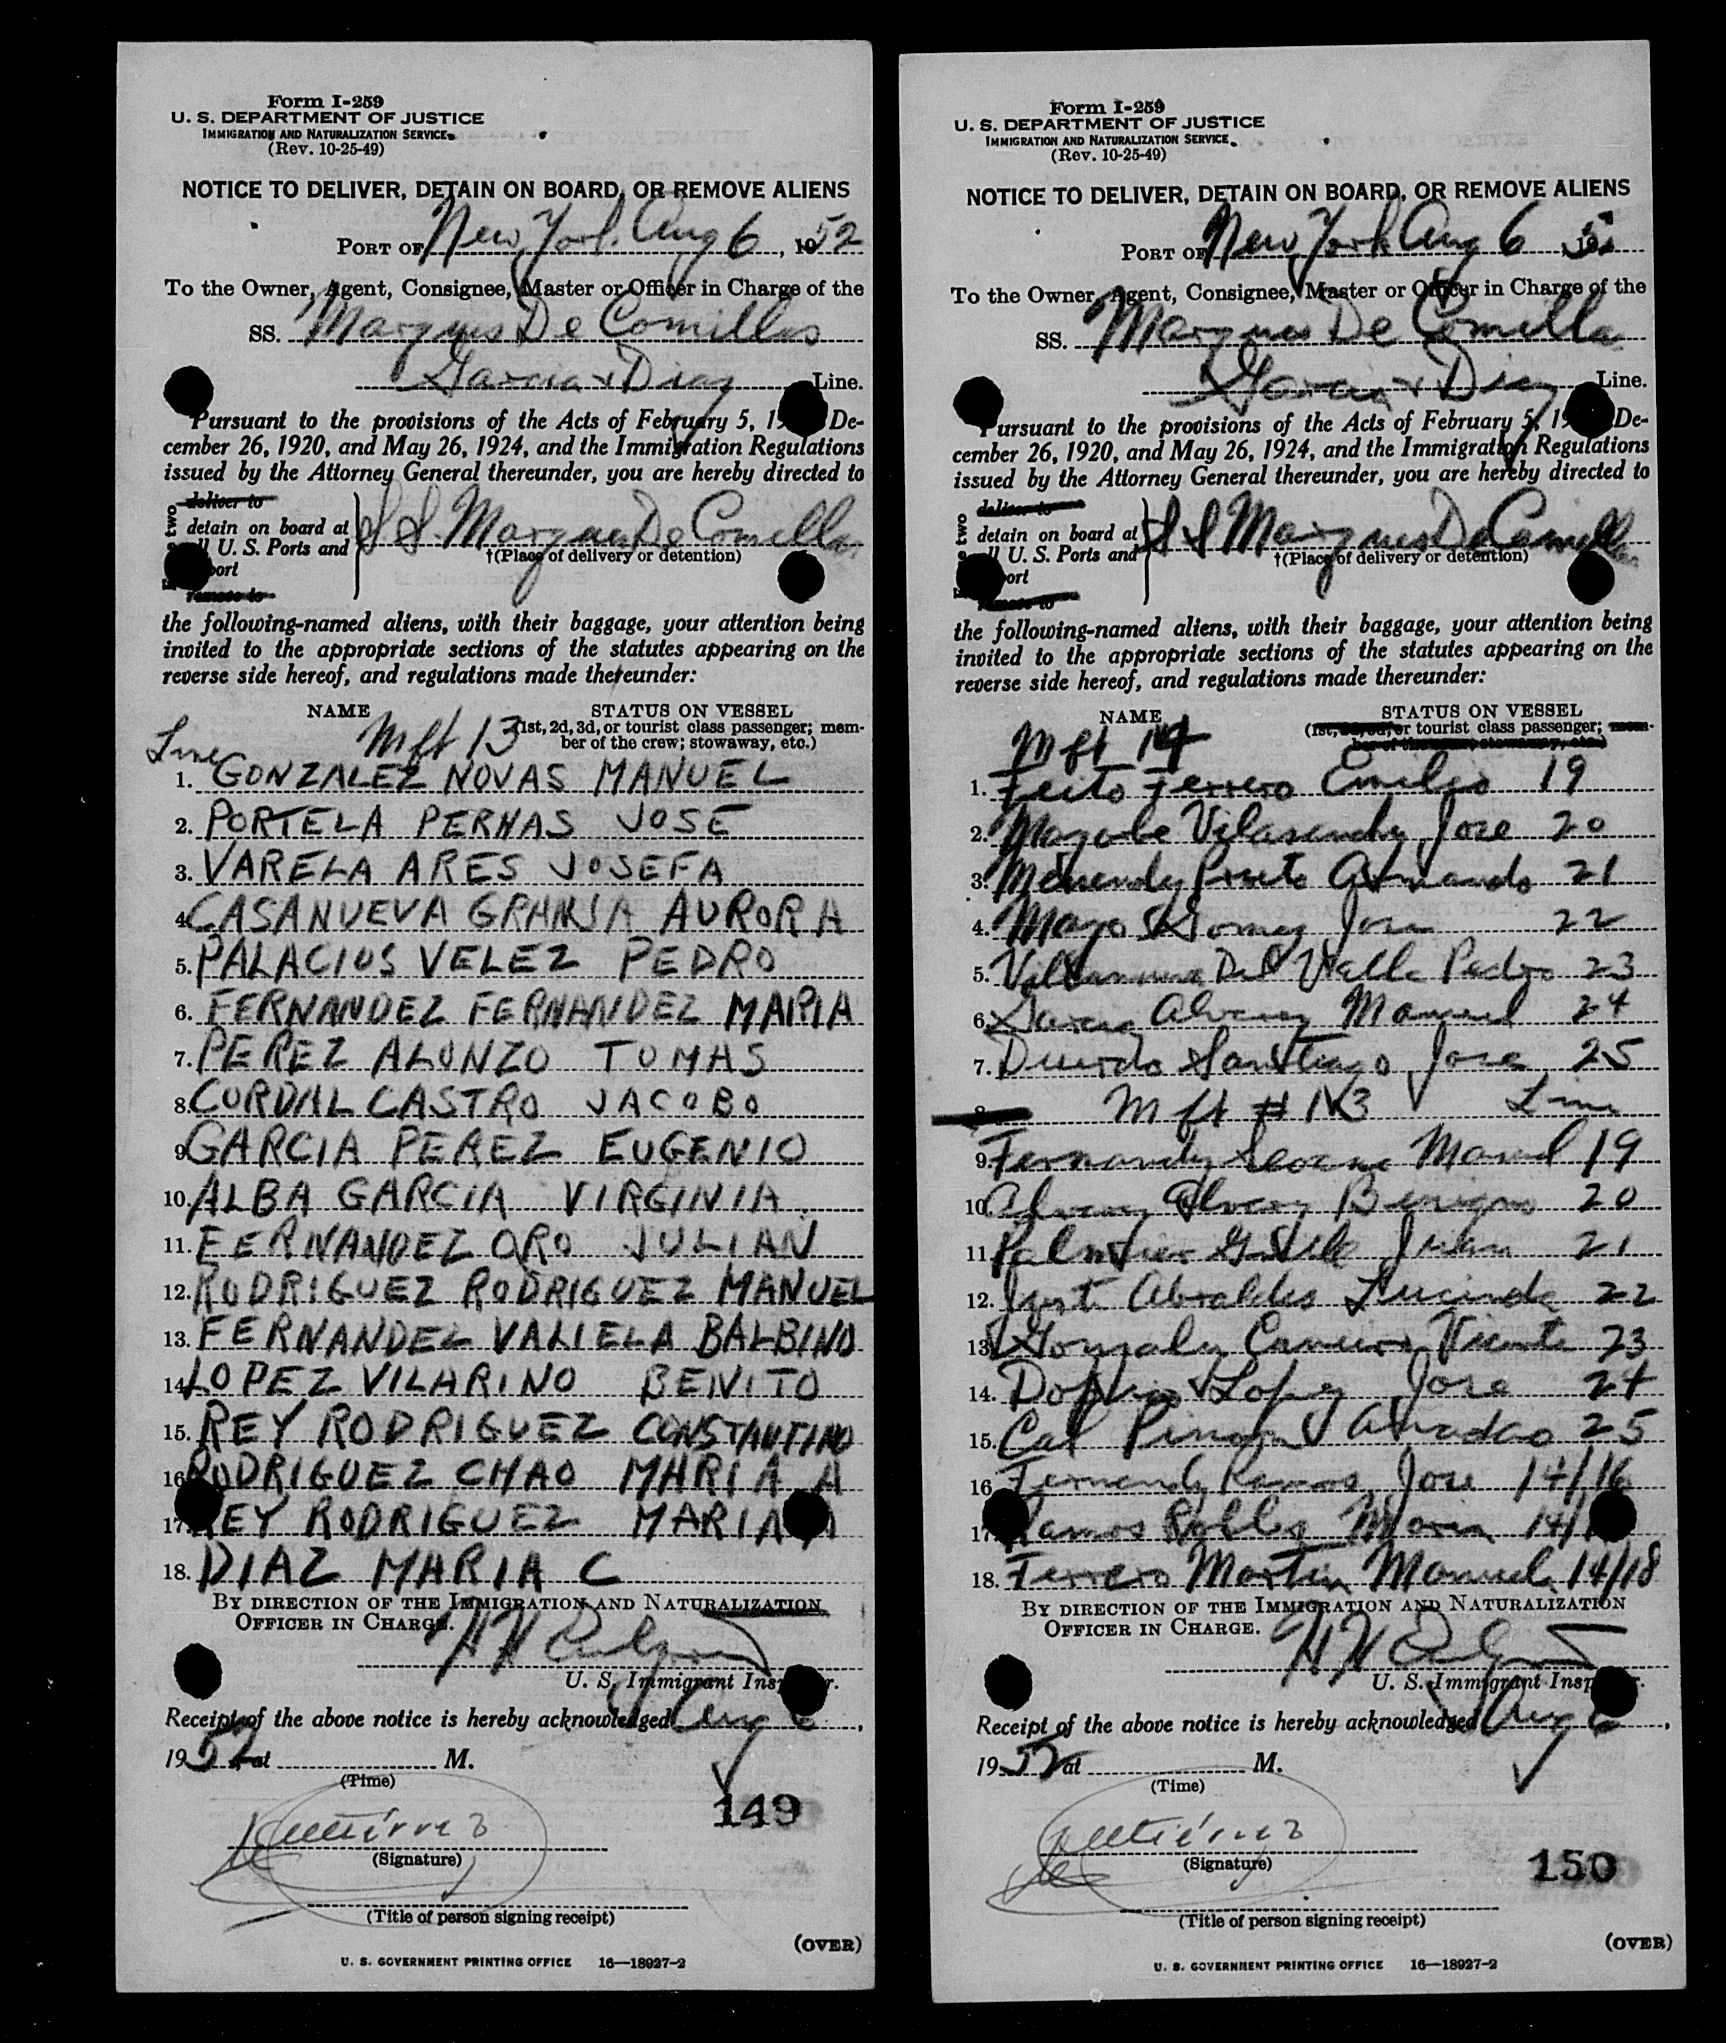 Form I-259
U. S. DEPARTMENT OF JUSTICE
IMMIGRATION AND NATURALIZATION SERVICE
(Rev. 10-25-49)
NOTICE TO DELIVER, DETAIN ON BOARD, OR REMOVE ALIENS
PORT OF New York Aug 6, 1952
To the Owner, Agent, Consignee, Master or Officer in Charge of the
SS. Marques De Comillas
Garcia + Diaz Line.
Pursuant to the provisions of the Acts of February 5, 19 De-
cember 26, 1920, and May 26, 1924, and the Immigration Regulations
issued by the Attorney General thereunder, you are hereby directed to
deliver to
detain on board at
U. S. Ports and
S S. Marques De Comillas
†(Place of delivery or detention)
remove to
the following-named aliens, with their baggage, your attention being
invited to the appropriate sections of the statutes appearing on the
reverse side hereof, and regulations made thereunder:
NAME
STATUS ON VESSEL
Line Mft 13
(1st, 2d, 3d, or tourist class passenger; mem-
ber of the crew; stowaway, etc.)
1. GONZALEZ NOVAS MANUEL
2. PORTELA PERNAS JOSE
3. VARELA ARES JOSEFA
4. CASANUEVA GRANJA AURORA
5. PALACIOS VELEZ PEDRO
6. FERNANDEZ FERNANDEZ MARIA
7. PEREZ ALONZO TOMAS
8. CORDAL CASTRO JACOBO
9. GARCIA PEREZ EUGENIO
10. ALBA GARCIA VIRGINIA
11. FERNANDEZ ORO JULIAN
12. RODRIGUEZ RODRIGUEZ MANUEL
13. FERNANDEZ VALIELA BALBINO
14. LOPEZ VILARINO BENITO
15. REY RODRIGUEZ CONSTANTINO
16. RODRIGUEZ CHAO MARIA A
17. REY RODRIGUEZ MARIA
18. DIAZ MARIA C
BY DIRECTION OF THE IMMIGRATION AND NATURALIZATION
OFFICER IN CHARGE.
U. S. Immigrant Inspector.
Receipt of the above notice is hereby acknowledged Aug 6,
1952 at M.
(Time)
149
Gutiérrez
(Signature)
(Title of person signing receipt)
(OVER)
U. S. GOVERNMENT PRINTING OFFICE 16—18927-2
Form I-259
U. S. DEPARTMENT OF JUSTICE
IMMIGRATION AND NATURALIZATION SERVICE
(Rev. 10-25-49)
NOTICE TO DELIVER, DETAIN ON BOARD, OR REMOVE ALIENS
PORT OF New York Aug 6
To the Owner, Agent, Consignee, Master or Officer in Charge of the
SS. Marques De Comillas
Garcia + Diaz Line.
Pursuant to the provisions of the Acts of February 5, 19 De-
cember 26, 1920, and May 26, 1924, and the Immigration Regulations
issued by the Attorney General thereunder, you are hereby directed to
deliver to
detain on board at
U. S. Ports and
S S Marques De Comillas
†(Place of delivery or detention)
remove to
the following-named aliens, with their baggage, your attention being
invited to the appropriate sections of the statutes appearing on the
reverse side hereof, and regulations made thereunder:
NAME
STATUS ON VESSEL
Mft 14
(1st, 2d, 3d, or tourist class passenger; mem-
ber of the crew; stowaway, etc.)
1. Feito Ferrero Emilio 19
2. Jose 20
3. Menendez Prieto Armando 21
4. Mayo Gomez Jose 22
5. Del Valle Pedro 23
6. Garcia Alvarez Manuel 24
7. Santiago Jose 25
8. Mft # 13 Line
9. Fernandez Seoane Manuel 19
10. Alvarez Alvarez Benigno 20
11. Juan 21
12. Abraldes Lucinda 22
13. Gonzalez Vicente 23
14. Lopez Jose 24
15. Cal 25
16. Fernandez Ramos Jose 14/16
17. Ramos Robles Maria 14/
18. Ferrero Martin Manuel 14/18
BY DIRECTION OF THE IMMIGRATION AND NATURALIZATION
OFFICER IN CHARGE.
U. S. Immigrant Inspector.
Receipt of the above notice is hereby acknowledged Aug 6,
1952 at M.
(Time)
Gutiérrez
(Signature)
150
(Title of person signing receipt)
(OVER)
U. S. GOVERNMENT PRINTING OFFICE 16—18927-2